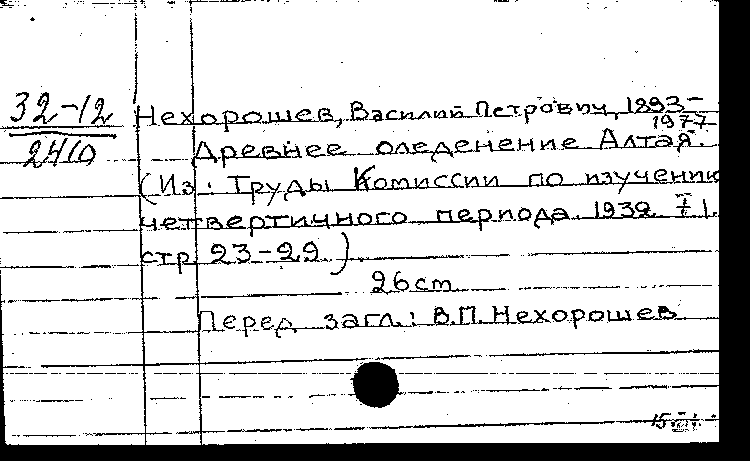 32-12
2410
Нехорошев, Василий Петрович, 1893-
1977.
Древнее оледенение Алтая.
(Из: Труды Комиссии по изучению
четвертичного периода. 1932. Т 1.
стр 23-29)
26 cm
Перед загл.: В.П. Нехорошев
15